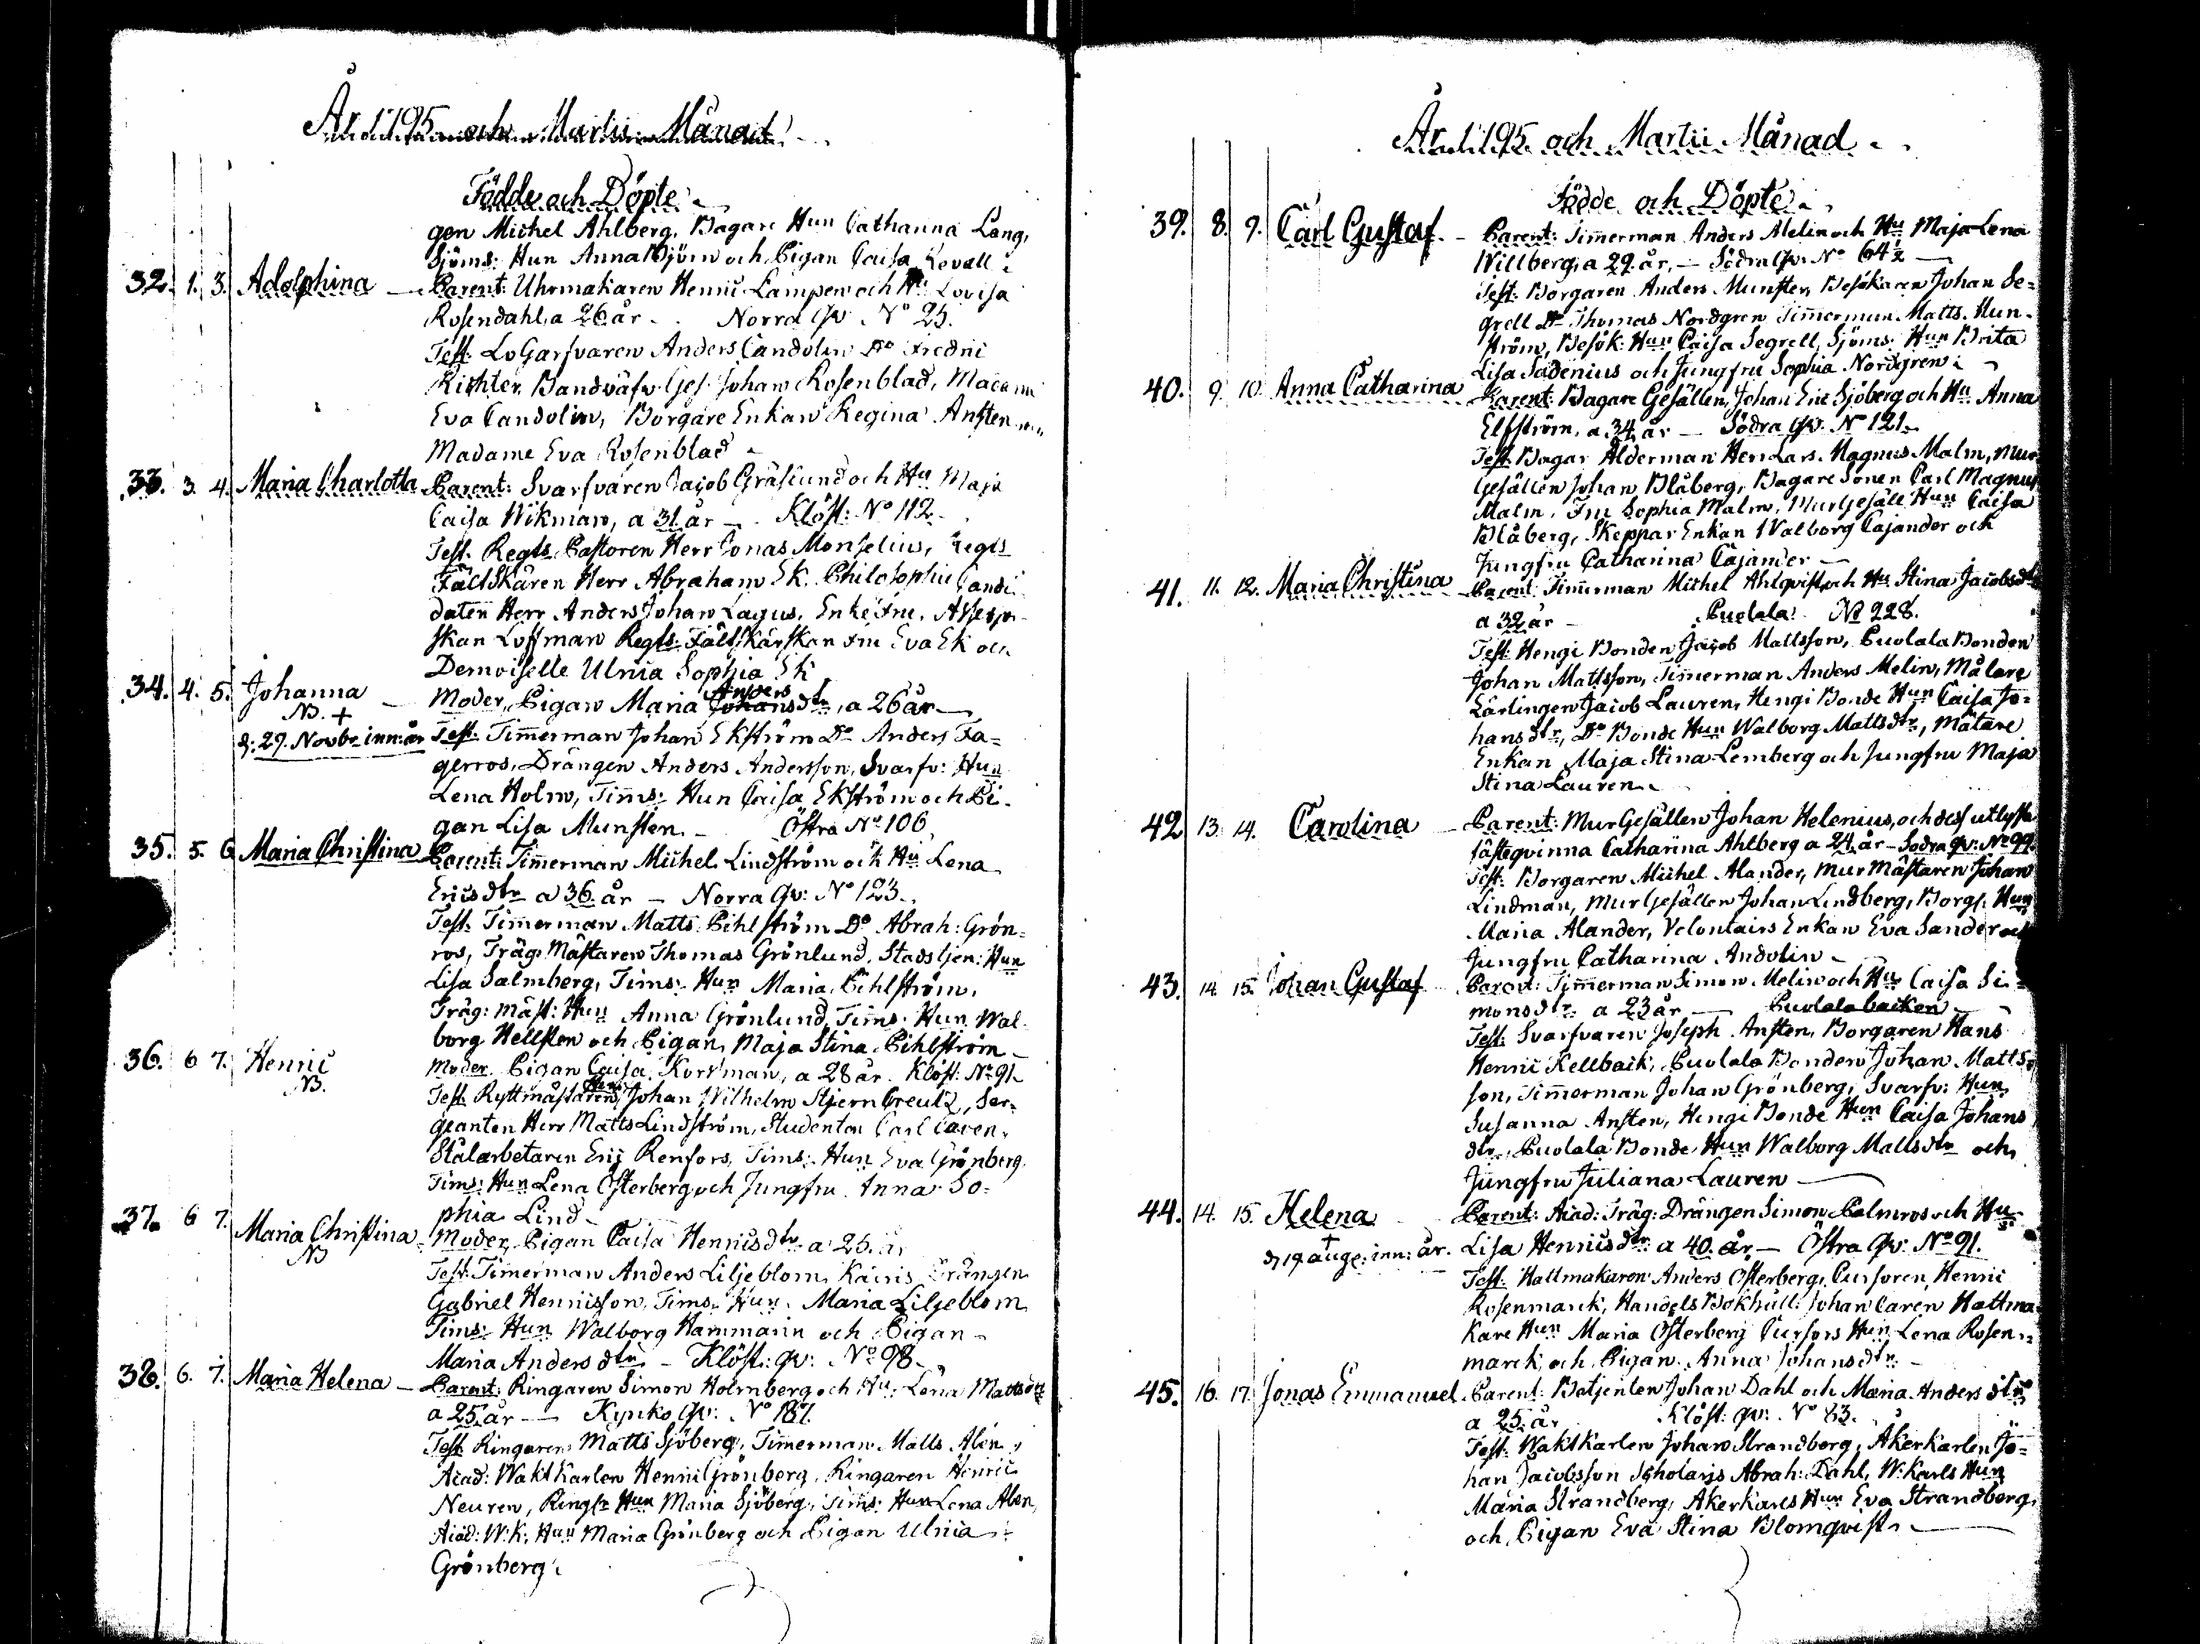 År 1795 och Martii Månad
Födde och Döpte
gen Michel Ahlberg, Bagare Hun Catharina Lång,
Sjöms: Hun Anna Björn och Pigan Caisa Revell
32. 1. 3. Adolphina — Parent: Uhrmakaren Henric Lampen och Hu Lovisa
Rosendahl, a 26 år. Norra Qv: No 25.
Test: LoGarfvaren Anders Candolin Do Fredric
Richter, Bandväfv: Ges: Johan Rosenblad, Madame
Eva Candolin, Borgare Enkan Regina Ansten
Madame Eva Rosenblad
33. 3. 4. Maria Charlotta Parent: Svarfvaren Jacob Gräslund och Hu Maja
Caisa Wikman, a 31 år — Klöst: No 112.
Test. Regts Pastoren Herr Jonas Monselius, Regts
Fältskären Herr Abraham Ek. Philosophiæ Candi
daten Herr Anders Johan Lagus, Enke Fru, Assessor
skan Loffman Regts: Fältskärskan Fru Eva Ek och
Demoiselle Ulrica Sophia Ek
34. 4. 5. Johanna — Moder, Pigan Maria Johansdtr Anders, a 26 år —
NB. +
d: 29. Novbr inn: år Test: Timmerman Johan Ekström Do Anders Fa=
gerros, Drängen Anders Andersson, Svarfv: Hun
Lena Holm, Tims: Hun Caisa Ekström och Pi-
gan Lisa Munsten. — Östra No 106.
35. 5. 6 Maria Christina Parent: Timmerman Michel Lindström och Hu Lena
Ericsdtr a 36 år — Norra Qv: No 123.
Test: Timmerman Matts Pihlström Do Abrah: Grön=
ros, Träg: Mästaren Thomas Grönlund, Stadstjen: Hun
Lisa Salmberg, Tims: Hun Maria Pihlström,
Träg: mäst: Hun Anna Grönlund Tims: Hun Wal
borg Hellsten och Pigan Maja Stina Pihlström —
36. 6 7. Henric Moder. Pigan Caisa Korsman, a 28 år. Klöst: No 91.
NB.
Test. Ryttmästaren Herr Johan Wilhelm StjernCreutz, Ser-
geanten Herr Matts Lindström, Studenten Carl Caven,
Stålarbetaren Eric Renfors, Tims: Hun Eva Grönberg,
Tims: Hun Lena Österberg och Jungfru Anna So=
phia Lind —
37. 6 7. Maria Christina — Moder, Pigan Caisa Henricsdtr a 25 år
NB
Test: Timerman Anders Liljeblom, Drängen
Gabriel Henricsson, Tims: Hun Maria Liljeblom
Tims: Hun Walborg Hammarin och Pigan —
Maria Andersdtr. — Klöst: qv: No 98.
38. 6. 7. Maria Helena — Parent: Ringaren Simon Holmberg och Hu: Lena Mattsdtr
a 25 år — Kyrko Qv: No 187.
Test. Ringaren Matts Sjöberg, Timmerman Matts Alén,
Acad: Waktkarlen Henric Grönberg, Ringaren Henric
Neuren, Ring:s Hun Maria Sjöberg, Tims: Hun Lena Alen,
Acad: W:K: Hun Maria Grönberg och Pigan Ulrica
Grönberg.
År 1795 och Martii Månad
Födde och Döpte
39. 8. 9. Carl Gustaf. — Parent: Timmerman Anders Melin och Hu Maja Lena
Willberg, a 29 år, — Södra Qv: No 64½ —
Test: Borgaren Anders Munster, Besökaren Johan Se=
grell Do Thomas Nordgren Timmerman Matts Hun-
ström, Besök: Hun Caisa Segrell, Sjöms: Hun Brita
Lisa Sadenius och Jungfru Sophia Nordgren
40. 9. 10. Anna Catharina Parent: Bagare Gesällen, Johan Eric Sjöberg och Hu: Anna
Elfström, a 34 år — Södra Qv: No 121.
Test. Bagar Ålderman Herr Lars Magnus Malm, Mur
Gesällen Johan Blåberg, Bagare Sonen Carl Magnus
Malm, Fru Sophia Malm, Murgesäll Hun Caisa
Blåberg, Skeppar Enkan Walborg Cajander och
Jungfru Catharina Cajander —
41. 11. 12. Maria Christina — Parent: Timmerman Michel Ahlqvist och Hu Stina Jacobsdtr
a 32 år — Puolala No 228.
Test: Hengi Bonden Jacob Mattsson, Puolala Bonden
Johan Mattsson, Timmerman Anders Melin, Målare
Lärlingen Jacob Lauren, Hengi Bonde Hun Caisa Jo=
hansdtr, Do Bonde Hun Walborg Mattsdtr, Mätare
Enkan Maja Stina Lemberg och Jungfru Maja
Stina Lauren.
42 13. 14. Carolina — Parent: Mur Gesällen Johan Helenius, och dess utlysta
fästeqvinna Catharina Ahlberg a 24 år — Södra qv: No 99.
Test: Borgaren Michel Alander, Mur Mästaren Johan
Lindman, Mur Gesällen Johan Lindberg, Borg: Hun
Maria Alander, Volontairs Enkan Eva Sander och
Jungfru Catharina Andolin —
43. 14 15. Johan Gustaf Parent: Timmerman Simon Melin och Hu Caisa Si=
monsdtr a 23 år — Puolalabacken —
Test: Svarfvaren Joseph Ansten, Borgaren Hans
Henric Kellback, Puolala Bonden Johan Matts
son, Timmerman Johan Grönberg, Svarfv: Hun
Susanna Ansten, Hengi Bonde Hun Caisa Johans
dtr, Puolala Bonde Hun Walborg Mattsdtr och
Jungfru Juliana Lauren —
44. 14. 15. Helena + Parent: Acad: Träg: Drängen Simon Palmros och Hu
d 19 aug: inn: år. Lisa Henricsdtr a 40 år — Östra Qv: No 91.
Test: Hattmakaren Anders Österberg, Cursoren Henric
Rosenmarck, Handels Bokhåll: Johan Caren Hattma
kare Hun Maria Österberg Cursors Hun Lena Rosen=
marck och Pigan Anna Johansdtr. —
45. 16. 17. Jonas Emmanuel Parent: Betjenten Johan Dahl och Maria Andersdtr
a 25 år Klöst: qv: No 83.
Test: Waktkarlen Johan Strandberg, Åkerkarlen Jo=
han Jacobsson Scholaris Abrah: Dahl, W:karls Hun
Maria Strandberg, Åkerkarls Hun Eva Strandberg,
och Pigan Eva Stina Blomqvist —